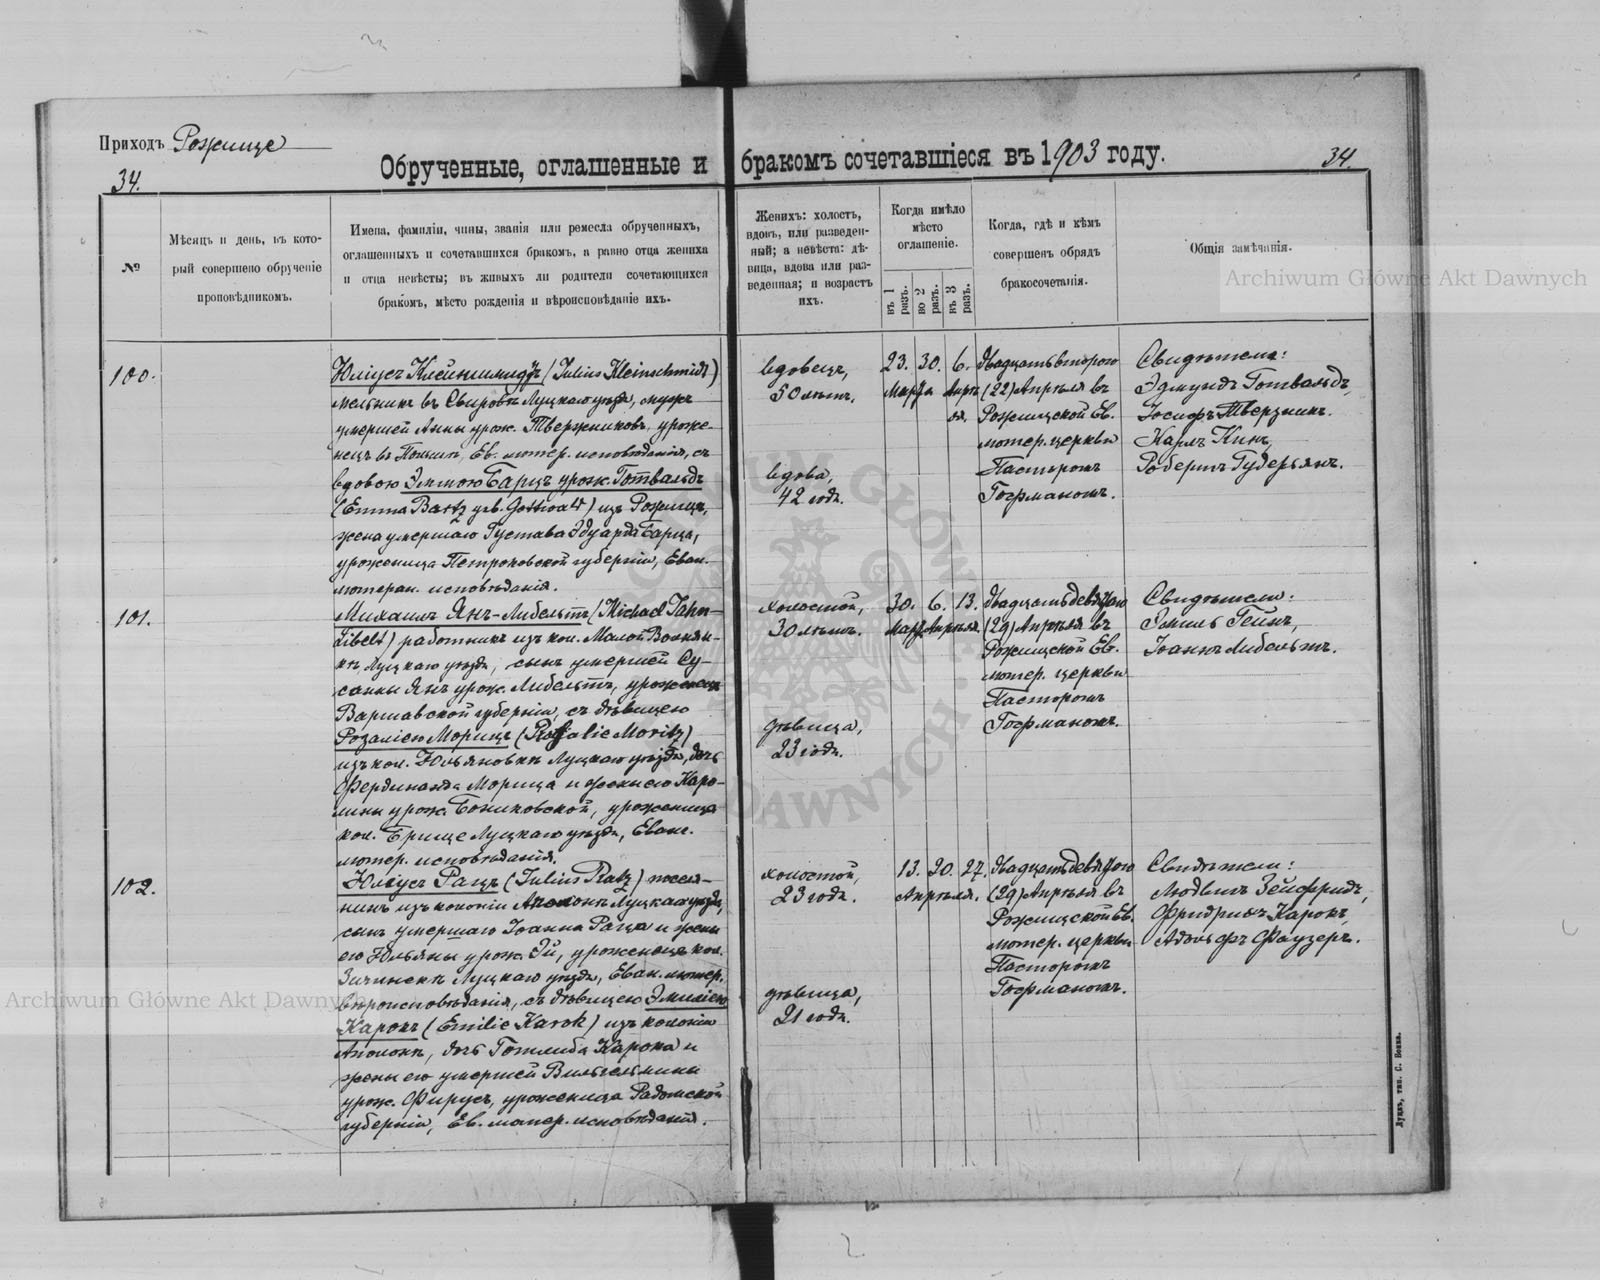 Приходъ Рожище
34.
Обрученные, оглашенные и бракомъ сочетавшіеся въ 1903 году.
34
№
Мѣсяцъ и день, въ кото-
рый совершено обрученіе
проповѣдникомъ.
Имена, фамиліи, чины, званія или ремесла обрученныхъ,
оглашенныхъ и сочетавшихся бракомъ, а равно отца жениха
и отца невѣсты; въ живыхъ ли родители сочетающихся
бракомъ, мѣсто рожденія и вѣроисповѣданіе ихъ.
Женихъ: холостъ,
вдовъ, или разведен-
ный; а невѣста: дѣ-
вица, вдова или раз-
веденная; и возрастъ
ихъ.
Когда имѣло
мѣсто
оглашеніе.
въ 1
разъ.
во 2
разъ.
въ 3
разъ.
Когда, гдѣ и кѣмъ
совершенъ обрядъ
бракосочетанія.
Общія замѣчанія.
Archiwum Główne Akt Dawnych
100.
Юліусъ Клейншмидтъ (Julius Kleinschmidt)
мельникъ въ Свировкѣ Луцкаго уѣзда, мужъ
умершей Анны урож. Твержниковъ, уроже-
нецъ въ Польши, Ев. лютер. исповѣданія, съ
вдовою Эммою Барцъ урож. Готвальдъ
(Emma Bartz geb. Gottwald) изъ Рожищъ,
жена умершаго Густава Эдуарда Барца,
уроженица Петроковской губерніи, Еван.
лютеран. исповѣданія.
вдовецъ,
50 лѣтъ.
вдова,
42 года.
23. 30. 6.
Марта Апрѣ
ля.
Двадцатьвторого
(22) Апрѣля въ
Рожищской Ев.
лютер. церкви
Пасторомъ
Гофманомъ.
Свидѣтели:
Эдмундъ Готвальдъ,
Іосифъ Тверзникъ.
Карлъ Кинъ,
Робертъ Гудерьянъ.
101.
Михаилъ Янъ-Либельтъ (Michael Jahn-
Libelt) работникъ изъ кол. Малой Волнян-
кѣ, Луцкаго уѣзда, сынъ умершей Су-
санны Янъ урож. Либельтъ, уроженецъ
Варшавской губерніи, съ дѣвицею
Розаліею Морицъ (Rosalie Moritz)
изъ кол. Юльяновкѣ Луцкаго уѣзда, дочь
Фердинанда Морица и жены его Каро-
лины урож. Божиковской, уроженица
кол. Брище Луцкаго уѣзда, Еванг.
лютер. исповѣданія.
холостой,
30 лѣтъ.
дѣвица,
23 года.
30. 6. 13.
Марта Апрѣля.
Двадцатьдевятого
(29) Апрѣля въ
Рожищской Ев.
лютер. церкви
Пасторомъ
Гофманомъ.
Свидѣтели:
Эмиль Гейнъ,
Іоаннъ Либельтъ.
102.
Юліусъ Рацъ (Julius Ratz) поселя-
нинъ изъ колоніи Аполонкѣ Луцкаго уѣзда,
сынъ умершаго Іоанна Раца и жены
его Юльяны урож. Эй, уроженецъ кол.
Луцкаго уѣзда, Еван. лютер.
вѣроисповѣданія, съ дѣвицею Эмиліею
Карокъ (Emilie Karok) изъ колоніи
Аполонкѣ, дочь Готлиба Карока и
жены его умершей Вильгельмины
урож. Фирусъ, уроженица Радомской
губерніи, Ев. лютер. исповѣданія.
холостой,
23 года.
дѣвица,
21 года.
13. 20. 27.
Апрѣля.
Двадцатьдевятого
(29) Апрѣля въ
Рожищской Ев.
лютер. церкви
Пасторомъ
Гофманомъ.
Свидѣтели:
Людвигъ Зейфридъ,
Фридрихъ Карокъ,
Адольфъ Фаузеръ.
Archiwum Główne Akt Dawnych